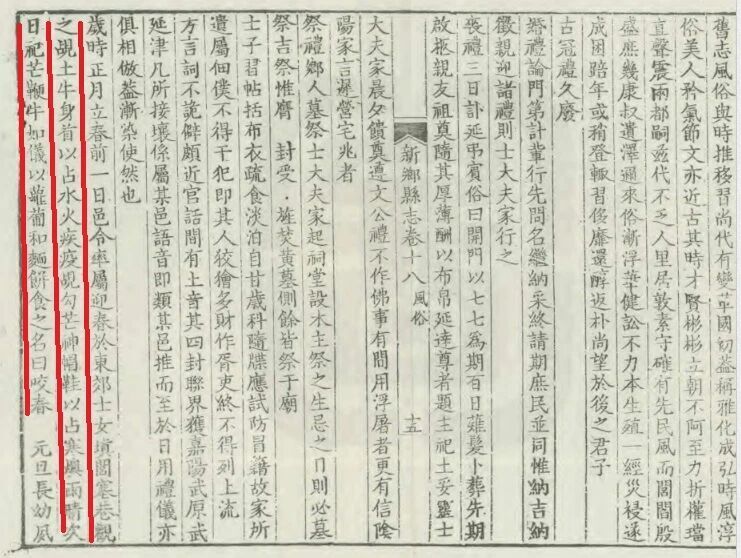 舊志風俗與時推移習尚代有變革國初益稱雅化成弘時風淳
俗美人矜氣節文亦近古其時才賢彬彬立朝不阿至力折權璫
直聲震兩都嗣茲代不乏人里居敦素守確有先民風而閭閻殷
盛庶幾康叔遺澤邇來俗漸浮華健訟不力本生殖一經災祲遂
成困踣年或稍登輙習侈靡還醇返朴尚望於後之君子
古冠禮久廢
婚禮論門第計輩行先問名繼納采終請期庶民並同惟納吉納
徵親迎諸禮則士大夫家行之
喪禮三日訃延弔賓俗曰開門以七七爲期百日薙髮卜葬先期
啟柩親友祖奠隨其厚薄酬以布帛延達尊者題主祀土妥靈士
新鄉縣志卷十八 風俗 十五
大夫家晨夕饋奠遵文公禮不作佛事有間用浮屠者更有信陰
陽家言遲營宅兆者
祭禮鄉人墓祭士大夫家起祠堂設木主祭之生忌之日則必墓
祭吉祭惟膺 封受 旌焚黃墓側餘皆祭于廟
士子習帖括布衣疏食淡泊自甘歲科隨牒應試防冒籍故家所
遺屬佃僕不得干犯即其人狡獪多財作胥吏終不得列上流
方言詞不詭僻頗近官話間有土音其四封聯界獲嘉陽武原武
延津凡所接壤係屬某邑語音即類某邑推而至於日用禮儀亦
俱相倣益漸染使然也
歲時正月立春前一日邑令率屬迎春於東郊士女塡闐塞巷觀
之覘土牛身首以占水火疾疫覘勾芒神帽鞋以占寒燠雨晴次
日祀芒鞭牛如儀以蘿蔔和麵餅食之名曰咬春 元旦長幼夙